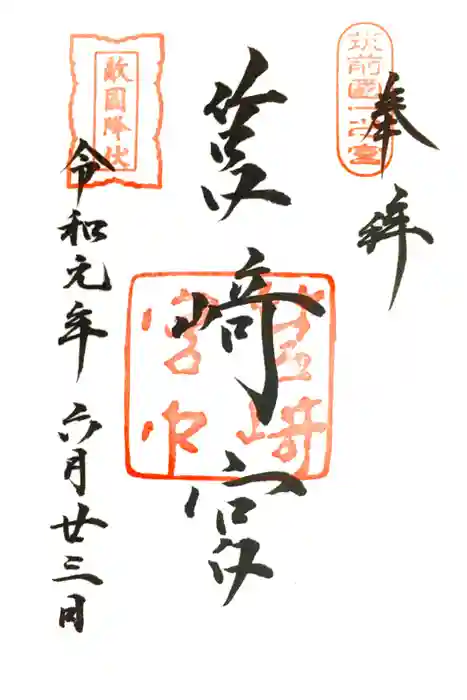 筑前國一之宮
奉拝
筥崎宮
敵国降伏
令和元年 六月廿三日